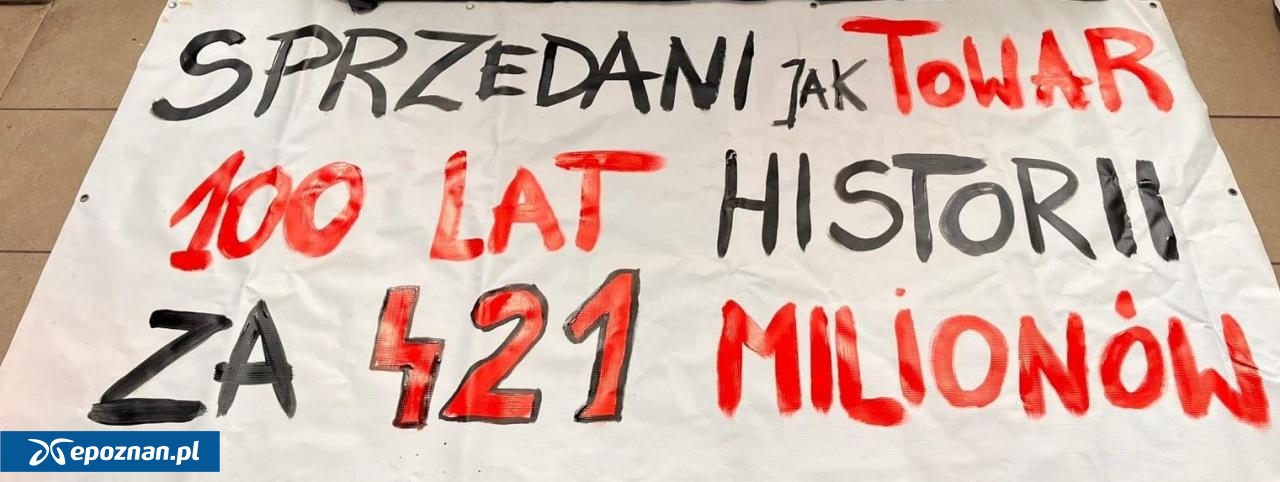 SPRZEDANI JAK TOWAR
100 LAT HISTORII
ZA 421 MILIONÓW
epoznan.pl